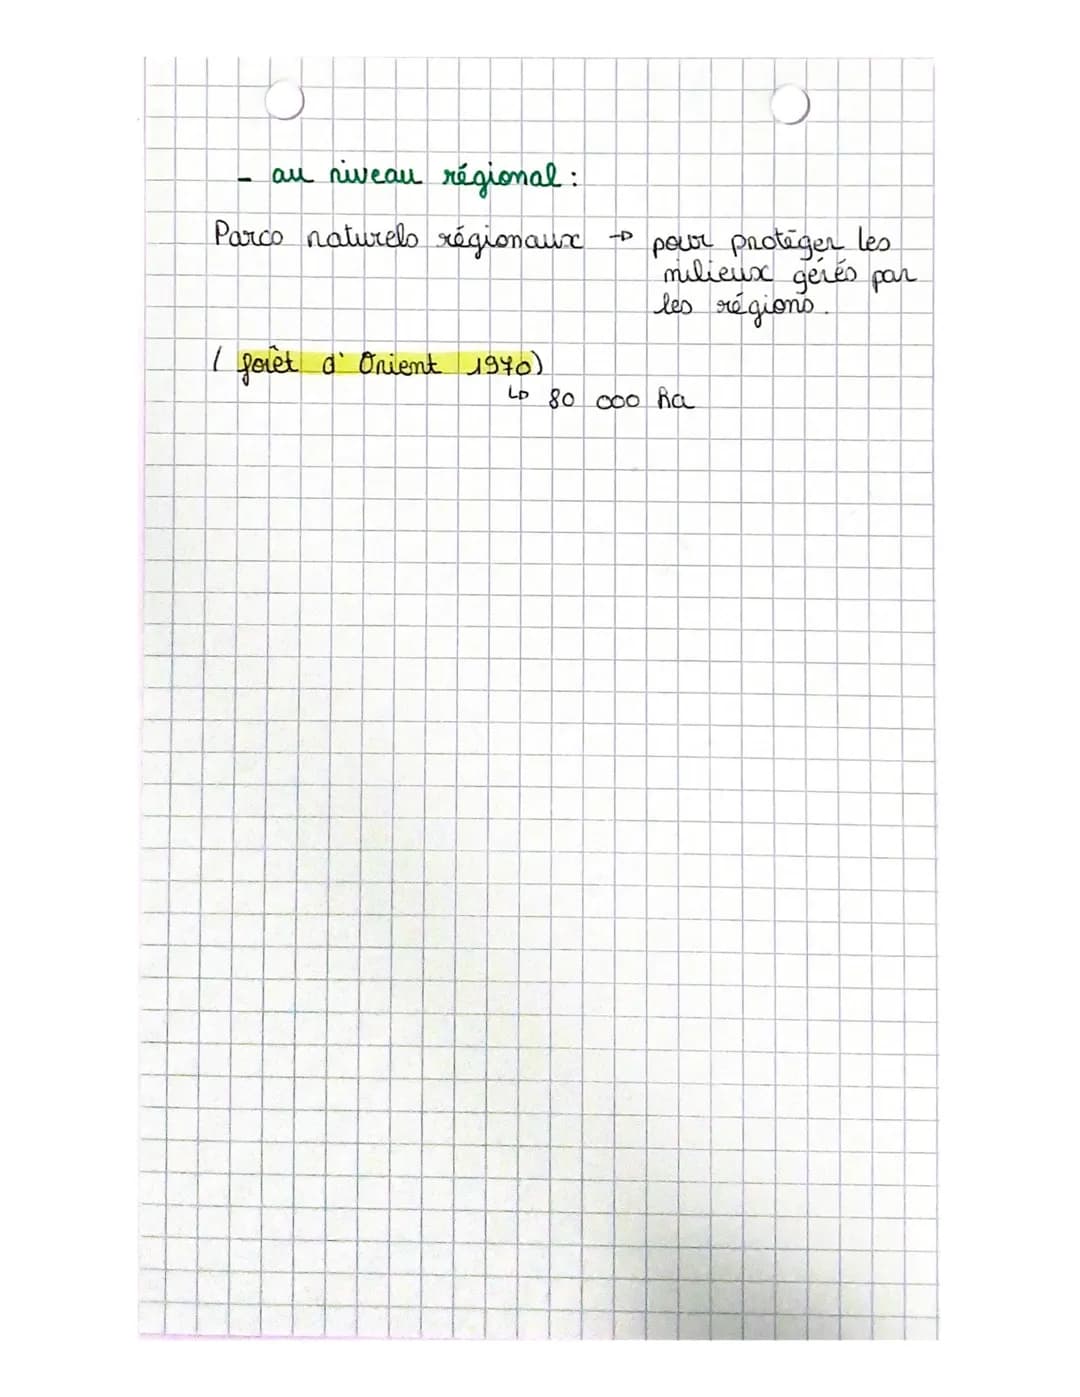 - au niveau régional :
Parcs naturels régionaux → pour protéger les
milieux gérés par
les régions.
( forêt d'Orient 1970)
↳ 80 000 ha